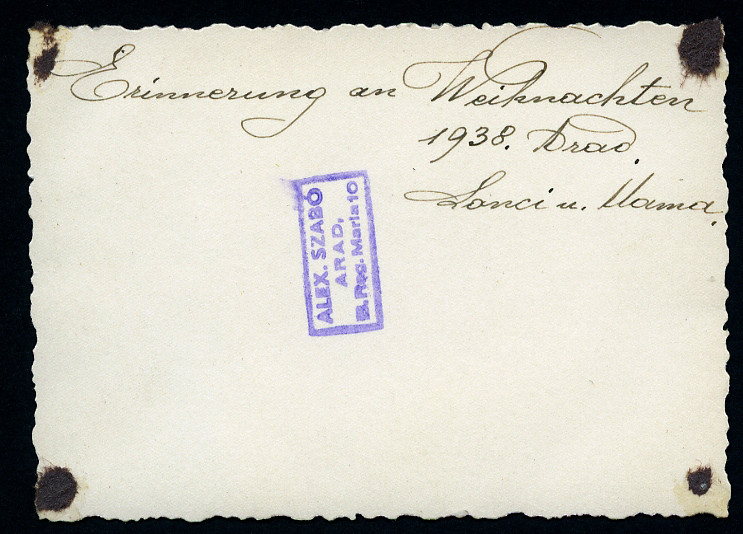 Erinnerung an Weihnachten
1938. Arad.
Lanci u. Mama.
ALEX. SZABÓ
ARAD,
B. Reg. Maria 10